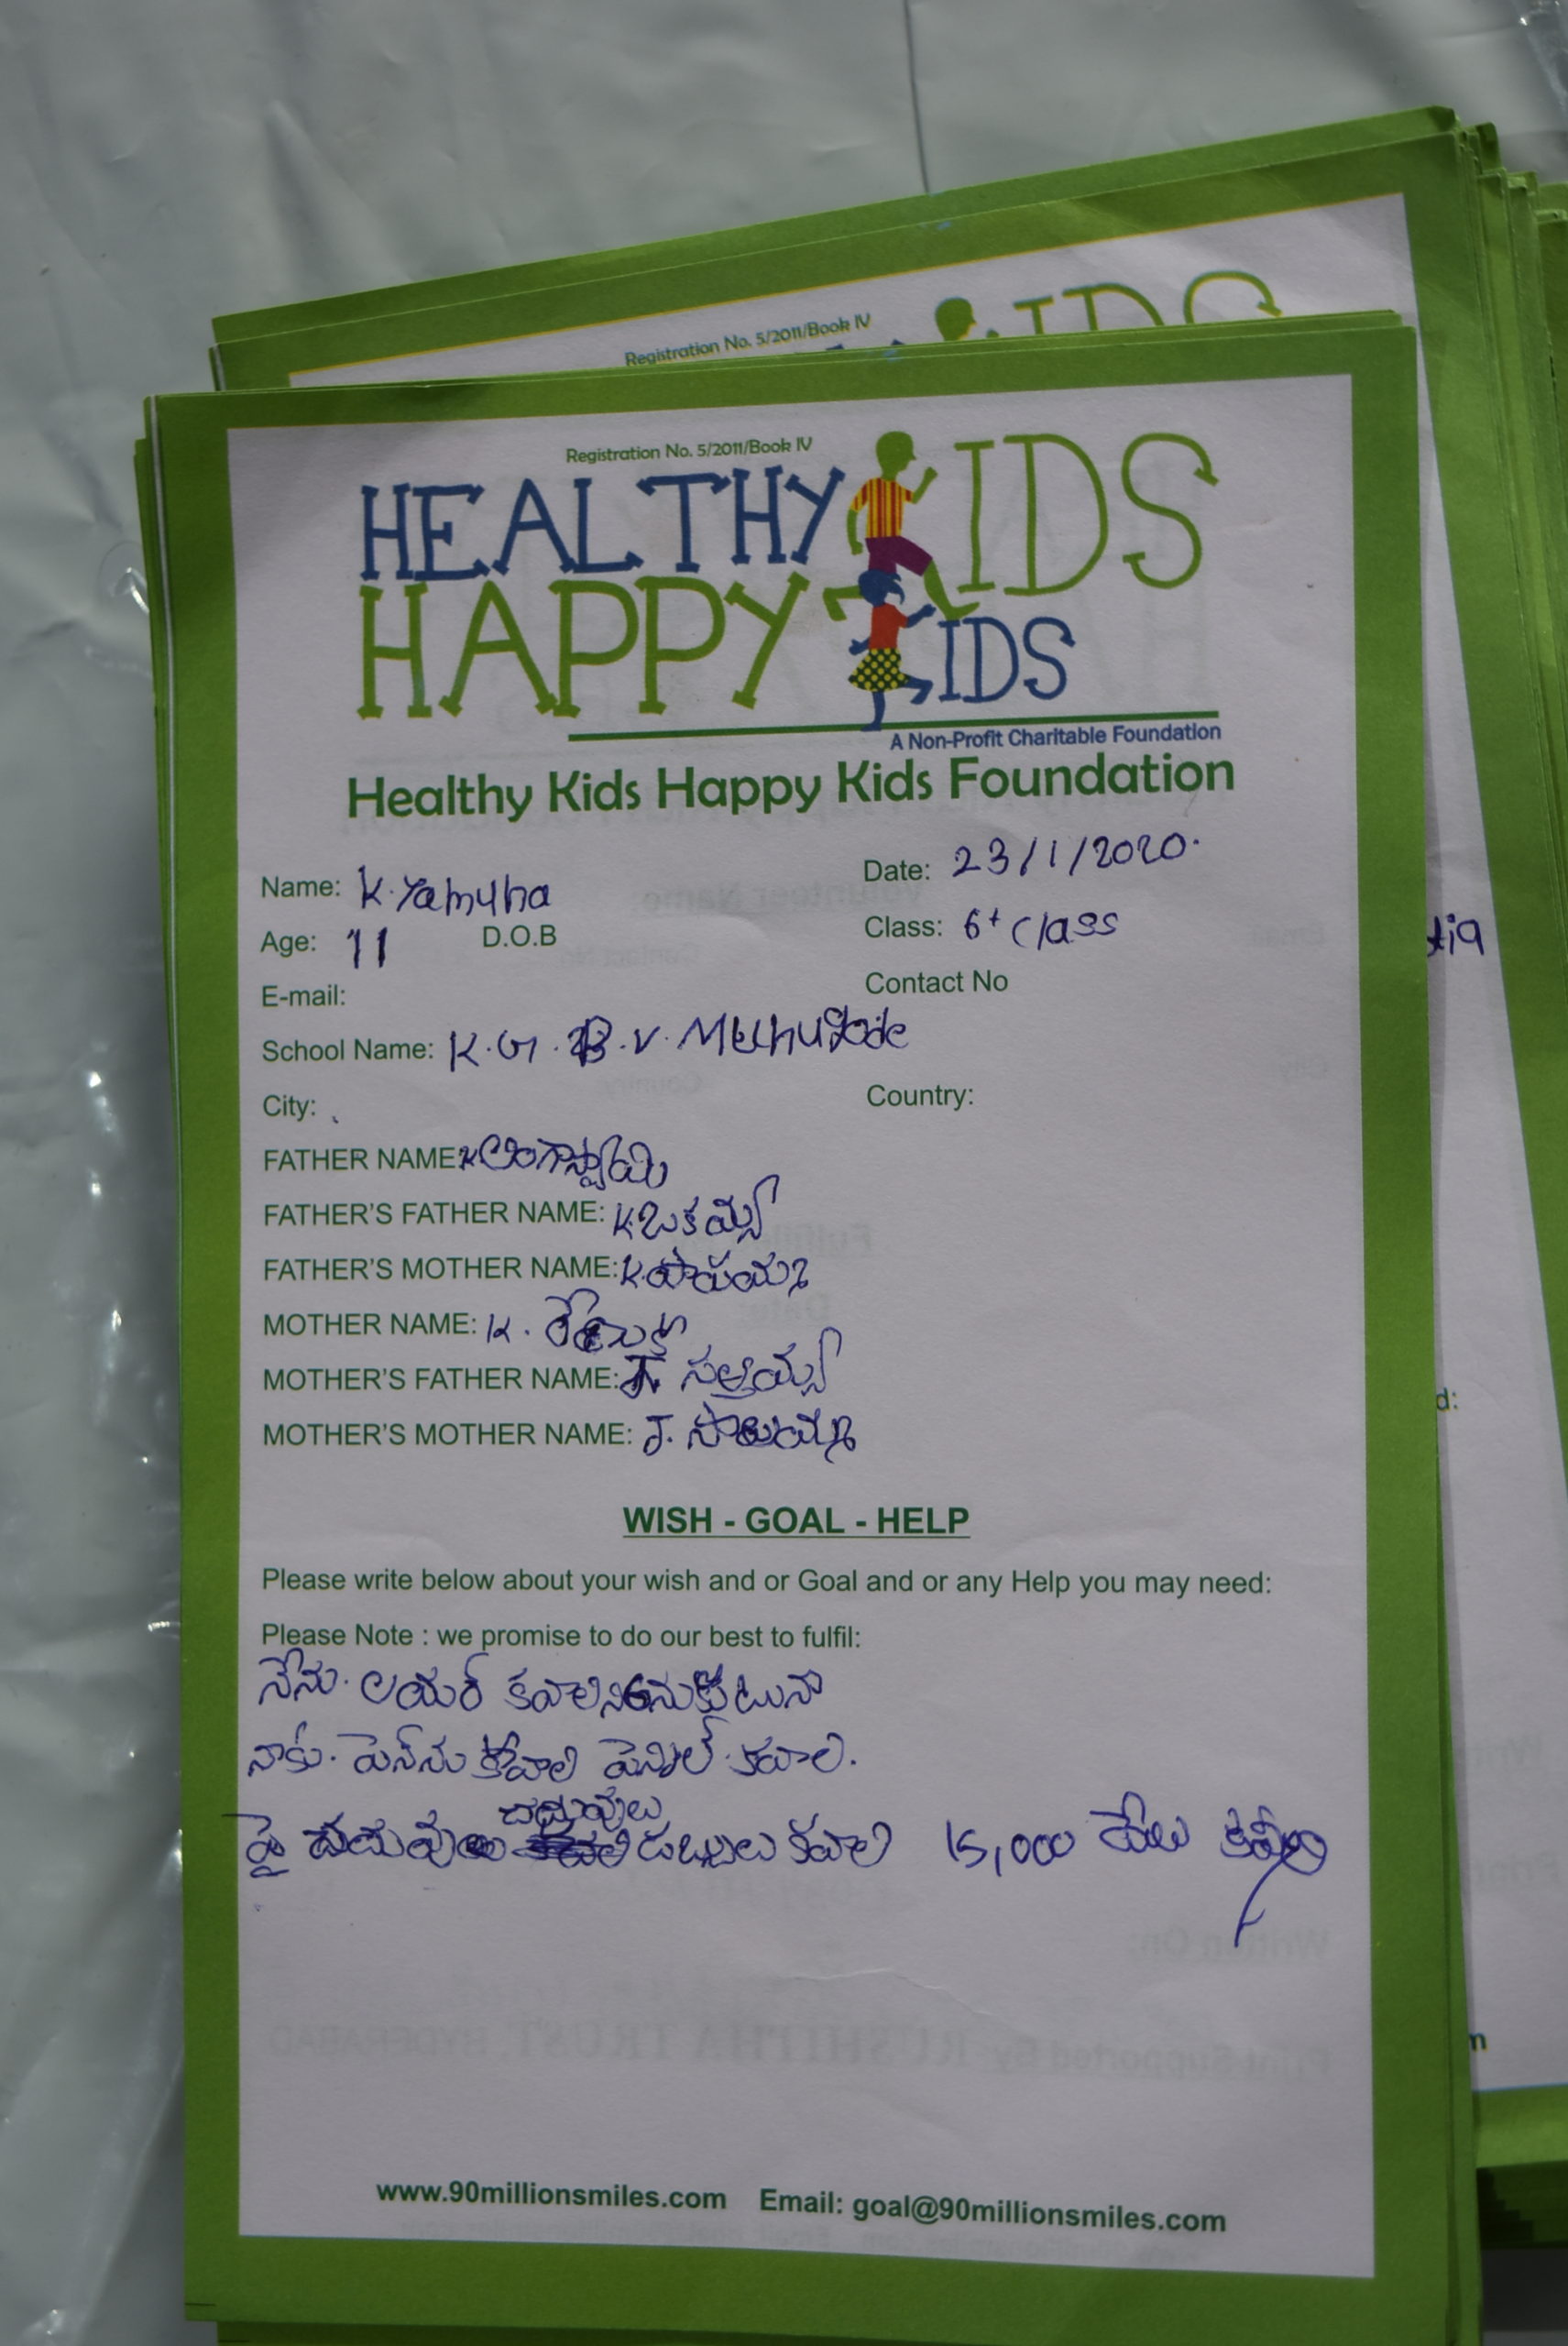 Registration No. 5/2011/Book IV
IDS
Registration No. 5/2011/Book IV
HEALTHY KIDS
HAPPY KIDS
A Non-Profit Charitable Foundation
Healthy Kids Happy Kids Foundation
Name: K. Yamuna Date: 23/1/2020.
Age: 11 D.O.B Class: 6+ class
E-mail: Contact No
School Name: K.G.B.V.
City: Country:
FATHER NAME: K లింగాస్వామి
FATHER'S FATHER NAME: K.
FATHER'S MOTHER NAME: K. పాపమ్మ
MOTHER NAME: K. రేణుక
MOTHER'S FATHER NAME: J. సత్తయ్య
MOTHER'S MOTHER NAME: J.
WISH - GOAL - HELP
Please write below about your wish and or Goal and or any Help you may need:
Please Note : we promise to do our best to fulfil:
నేను. లయర్ కవాలని అనుకుటునా
నాకు. పెన్ను కోవాలి పెన్సిల్ కవాలి.
చదువులు
పై చదువులు డబ్బులు కవాలి 15,000 వేలు కవాలి
www.90millionsmiles.com Email: goal@90millionsmiles.com